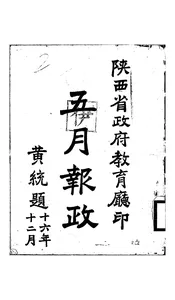 陝西省政府教育廳印
五月報政
黄統題
十六年
十二月